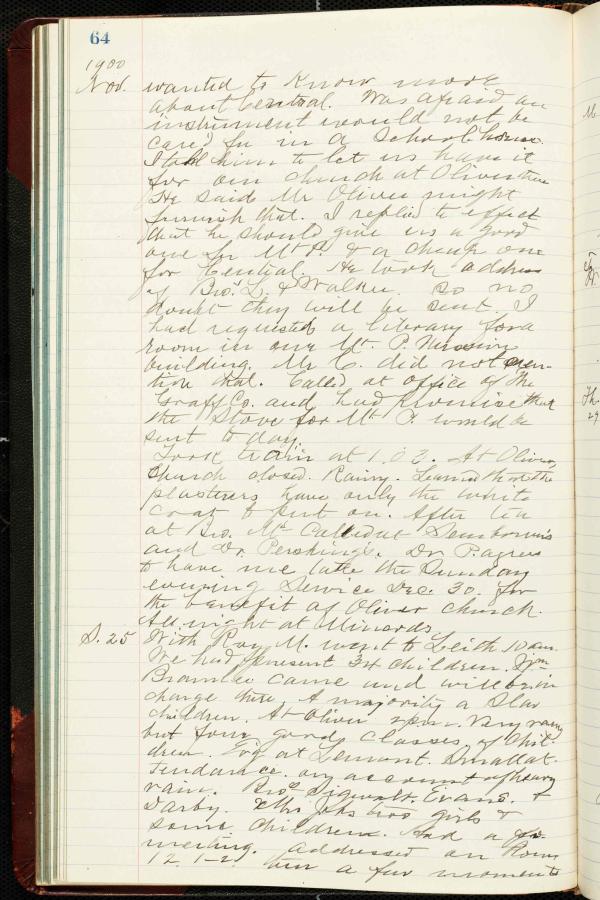 64
1900
Nov. wanted to know more
about Central. Was afraid an
instrument would not be
cared for in a school house.
I told him to let us have it
for our church at Oliver then
He said Mr Oliver might
furnish that. I replied to effect
that he should give us a good
one for Mt P. & a cheap one
for Central. He took address
of Bros. L. & Walker. so no
doubt they will be sent. I
had requested a library for a
room in our Mt. P. Mission
building. Mr C. did not men-
tion that. Called at office of the
Graff Co. and had promise that
the Stove for Mt P. would be
sent to day.
Took train at 1.03. At Oliver,
Church closed. Rainy. Learned that the
plasterers have only the white
coat to put on. After tea
at Bro. Mc Called at
and Dr. Pershing's. Dr P. agrees
to have me take the Sunday
evening Service Dec. 30. for
the benefit of Oliver church.
All night at Minerds.
S. 25 With Ray M. went to Leith 10 am.
We had present 34 children. Jim
came and will be in
charge there. A majority a Slav
children. At Oliver 2 pm. Very rainy
but four good classes of Chil-
dren. Evg at Lemont. Small at-
tendance. on account of heavy
rain. Bros Sigwalt. Evans. &
Darby. two girls &
some children. Had a
meeting. addressed on Rom
12. 1-2. a few moments